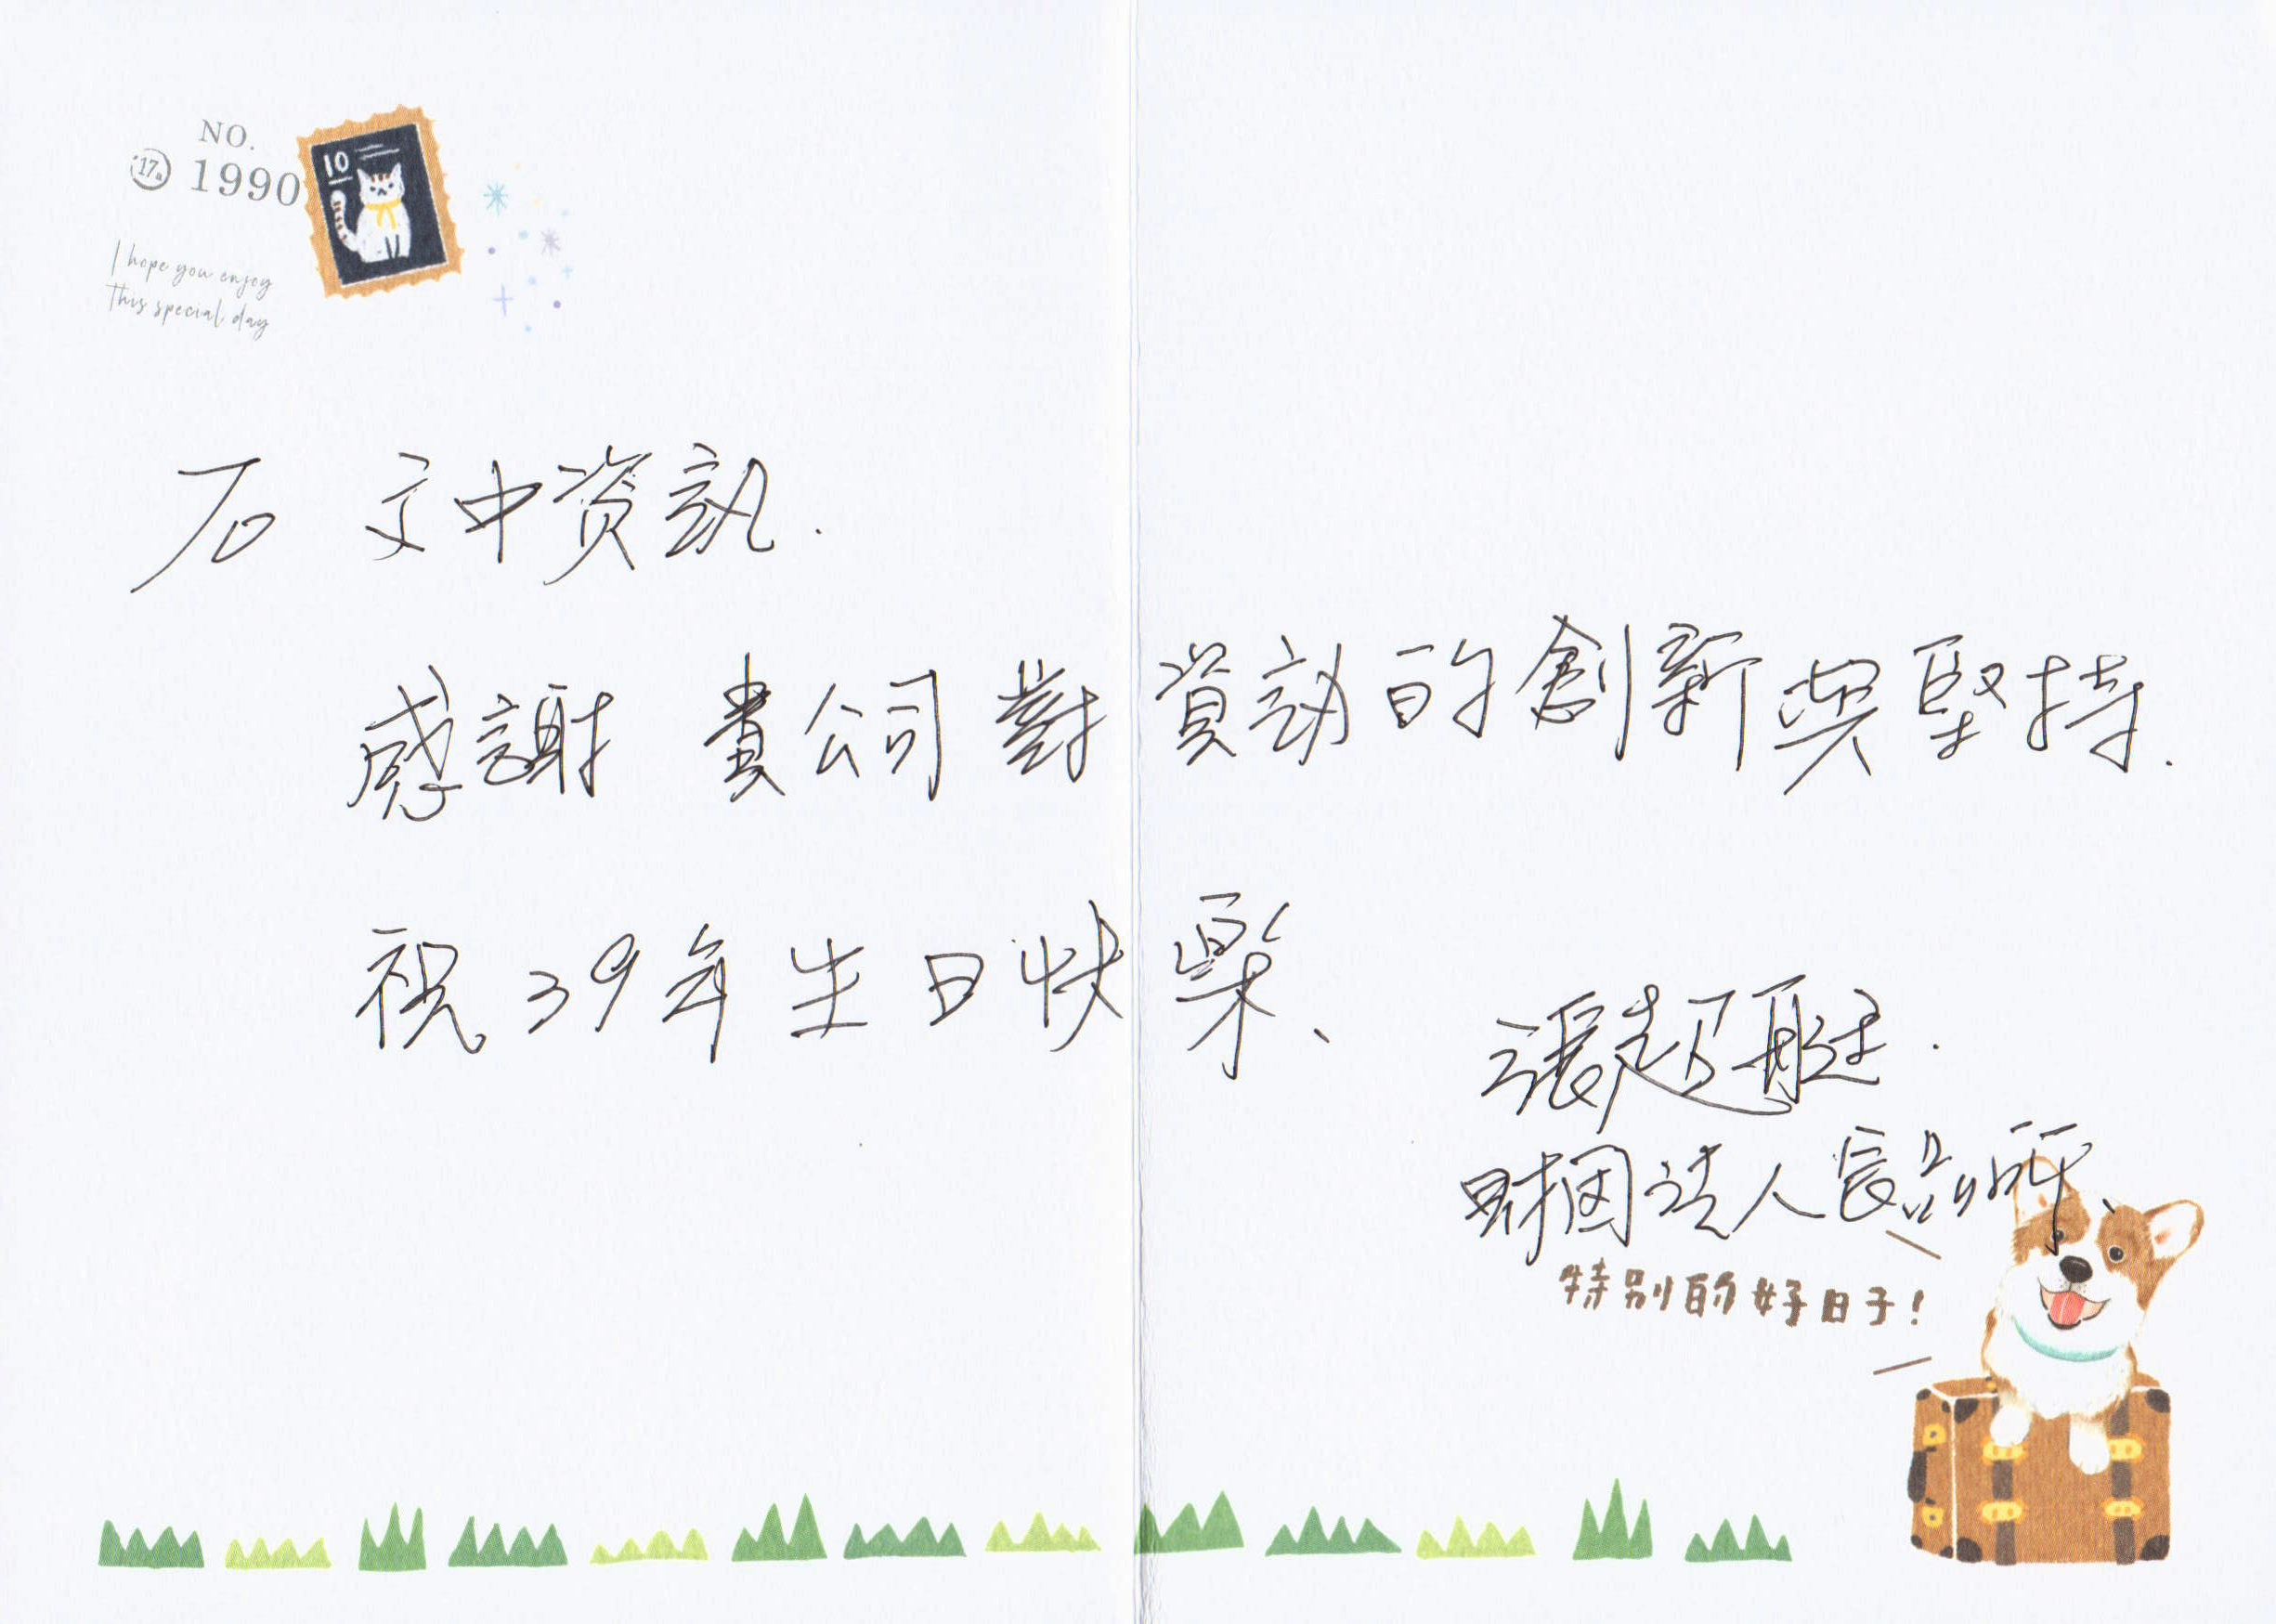 NO.
17a 1990
10
I hope you enjoy
This special day
石 文中資訊.
感謝 貴公司對資訊的創新與堅持.
祝39年生日快樂、
張超
財團法人 食品所、
特別的好日子!